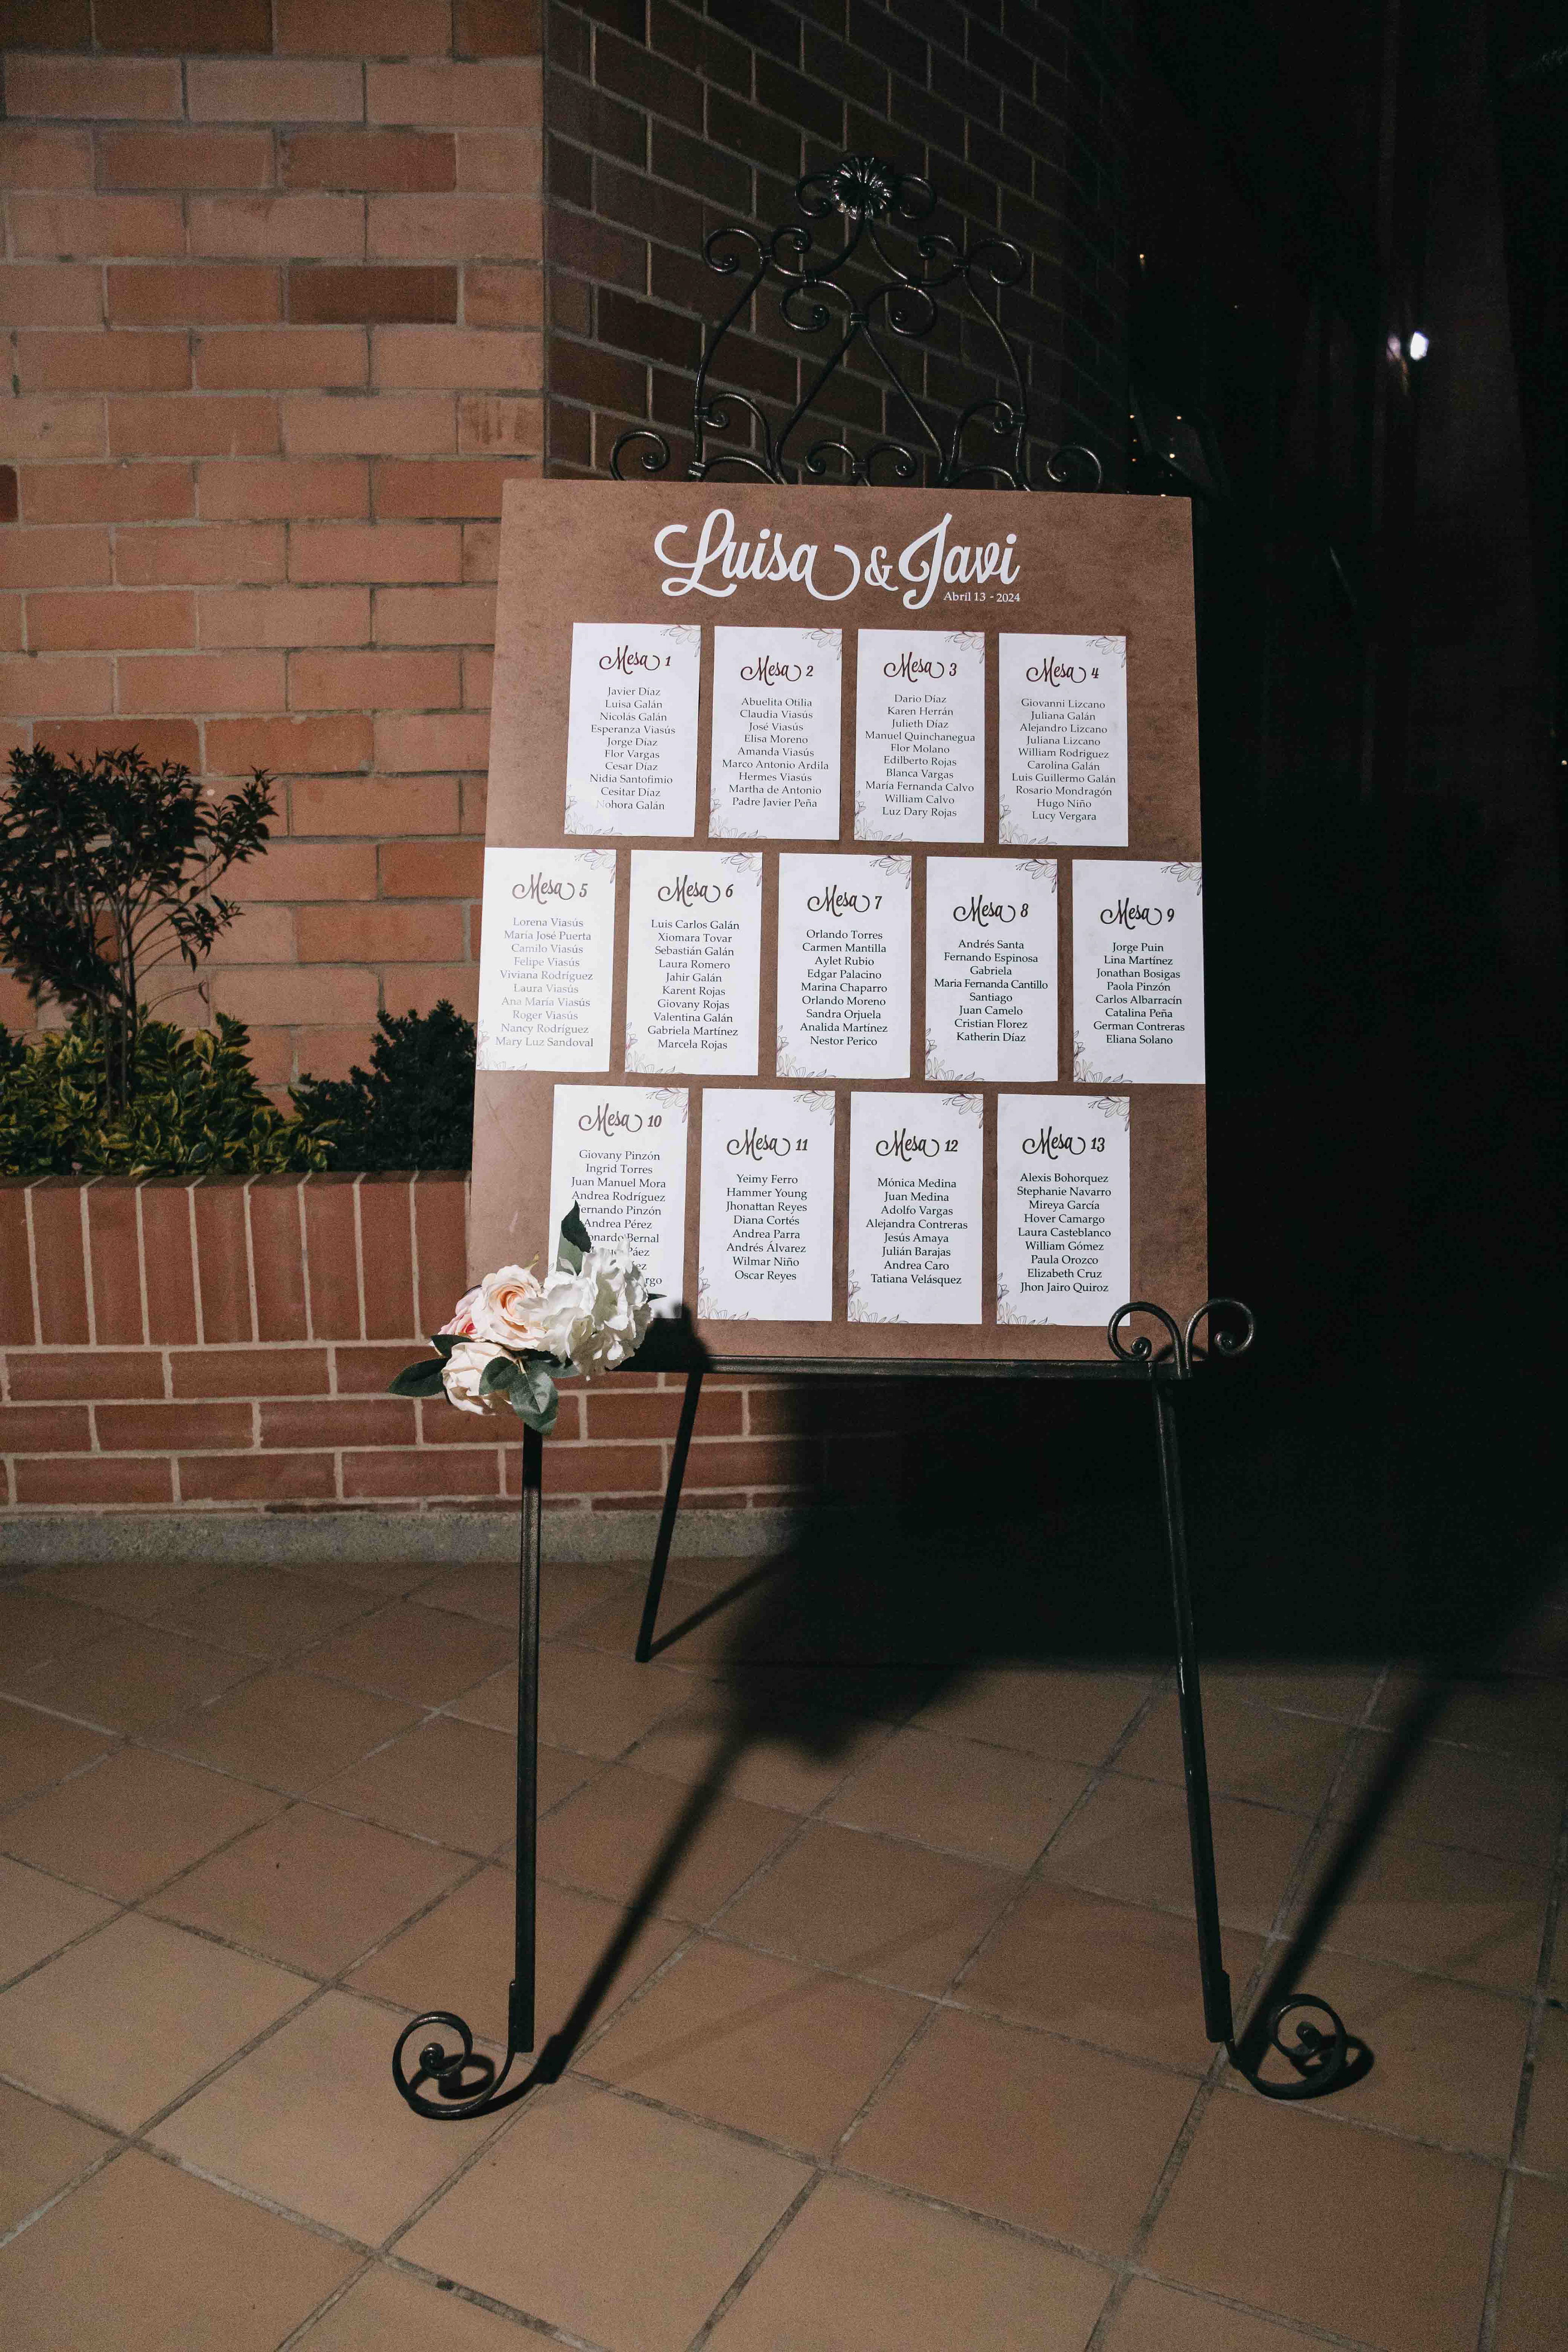 Luisa & Javi
Abril 13 - 2024
Mesa 1
Javier Díaz
Luisa Galán
Nicolás Galán
Esperanza Viasús
Jorge Díaz
Flor Vargas
Cesar Díaz
Nidia Santofimio
Cesitar Díaz
Nohora Galán
Mesa 2
Abuelita Otilia
Claudia Viasús
José Viasús
Elisa Moreno
Amanda Viasús
Marco Antonio Ardila
Hermes Viasús
Martha de Antonio
Padre Javier Peña
Mesa 3
Dario Díaz
Karen Herrán
Julieth Díaz
Manuel Quinchanegua
Flor Molano
Edilberto Rojas
Blanca Vargas
María Fernanda Calvo
William Calvo
Luz Dary Rojas
Mesa 4
Giovanni Lizcano
Juliana Galán
Alejandro Lizcano
Juliana Lizcano
William Rodríguez
Carolina Galán
Luis Guillermo Galán
Rosario Mondragón
Hugo Niño
Lucy Vergara
Mesa 5
Lorena Viasús
María José Puerta
Camilo Viasús
Felipe Viasús
Viviana Rodríguez
Laura Viasús
Ana María Viasús
Roger Viasús
Nancy Rodríguez
Mary Luz Sandoval
Mesa 6
Luis Carlos Galán
Xiomara Tovar
Sebastián Galán
Laura Romero
Jahir Galán
Karent Rojas
Giovany Rojas
Valentina Galán
Gabriela Martínez
Marcela Rojas
Mesa 7
Orlando Torres
Carmen Mantilla
Aylet Rubio
Edgar Palacino
Marina Chaparro
Orlando Moreno
Sandra Orjuela
Analida Martínez
Nestor Perico
Mesa 8
Andrés Santa
Fernando Espinosa
Gabriela
Maria Fernanda Cantillo
Santiago
Juan Camelo
Cristian Florez
Katherin Díaz
Mesa 9
Jorge Puin
Lina Martínez
Jonathan Bosigas
Paola Pinzón
Carlos Albarracín
Catalina Peña
German Contreras
Eliana Solano
Mesa 10
Giovany Pinzón
Ingrid Torres
Juan Manuel Mora
Andrea Rodríguez
Pinzón
Andrea Pérez
Bernal
Páez
Mesa 11
Yeimy Ferro
Hammer Young
Jhonattan Reyes
Diana Cortés
Andrea Parra
Andrés Álvarez
Wilmar Niño
Oscar Reyes
Mesa 12
Mónica Medina
Juan Medina
Adolfo Vargas
Alejandra Contreras
Jesús Amaya
Julián Barajas
Andrea Caro
Tatiana Velásquez
Mesa 13
Alexis Bohorquez
Stephanie Navarro
Mireya García
Hover Camargo
Laura Casteblanco
William Gómez
Paula Orozco
Elizabeth Cruz
Jhon Jairo Quiroz